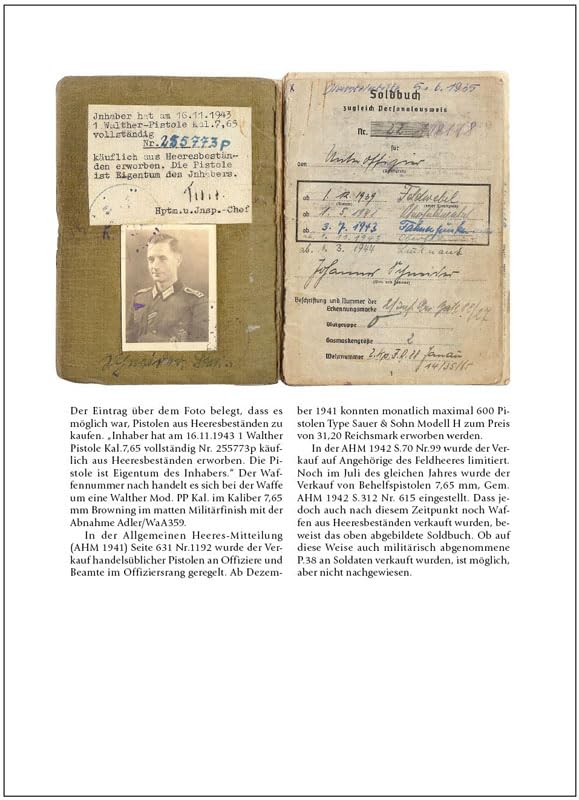 Jnhaber hat am 16.11.1943
1 Walther-Pistole Kal.7,65
vollständig
Nr. 255773p
käuflich aus Heeresbestän-
den erworben. Die Pistole
ist Eigentum des Jnhabers.
Hptm.u.Jnsp.-Chef
5. 6. 1935
Soldbuch
zugleich Personalausweis
Nr. 22
für
den Unteroffizier
ab 1. 12. 1939 Feldwebel
ab 1. 5.
ab 3. 7. 1943
ab 1. 3. 1944 Leutnant
Johannes Schneider
Beschriftung und Nummer der
Erkennungsmarke
Blutgruppe
Gasmaskengröße 2
Wehrnummer
14/35/65
1
Der Eintrag über dem Foto belegt, dass es
möglich war, Pistolen aus Heeresbeständen zu
kaufen. „Inhaber hat am 16.11.1943 1 Walther
Pistole Kal.7,65 vollständig Nr. 255773p käuf-
lich aus Heeresbeständen erworben. Die Pi-
stole ist Eigentum des Inhabers.“ Der Waf-
fennummer nach handelt es sich bei der Waffe
um eine Walther Mod. PP Kal. im Kaliber 7,65
mm Browning im matten Militärfinish mit der
Abnahme Adler/WaA359.
In der Allgemeinen Heeres-Mitteilung
(AHM 1941) Seite 631 Nr.1192 wurde der Ver-
kauf handelsüblicher Pistolen an Offiziere und
Beamte im Offiziersrang geregelt. Ab Dezem-
ber 1941 konnten monatlich maximal 600 Pi-
stolen Type Sauer & Sohn Modell H zum Preis
von 31,20 Reichsmark erworben werden.
In der AHM 1942 S.70 Nr.99 wurde der Ver-
kauf auf Angehörige des Feldheeres limitiert.
Noch im Juli des gleichen Jahres wurde der
Verkauf von Behelfspistolen 7,65 mm, Gem.
AHM 1942 S.312 Nr. 615 eingestellt. Dass je-
doch auch nach diesem Zeitpunkt noch Waf-
fen aus Heeresbeständen verkauft wurden, be-
weist das oben abgebildete Soldbuch. Ob auf
diese Weise auch militärisch abgenommene
P.38 an Soldaten verkauft wurden, ist möglich,
aber nicht nachgewiesen.